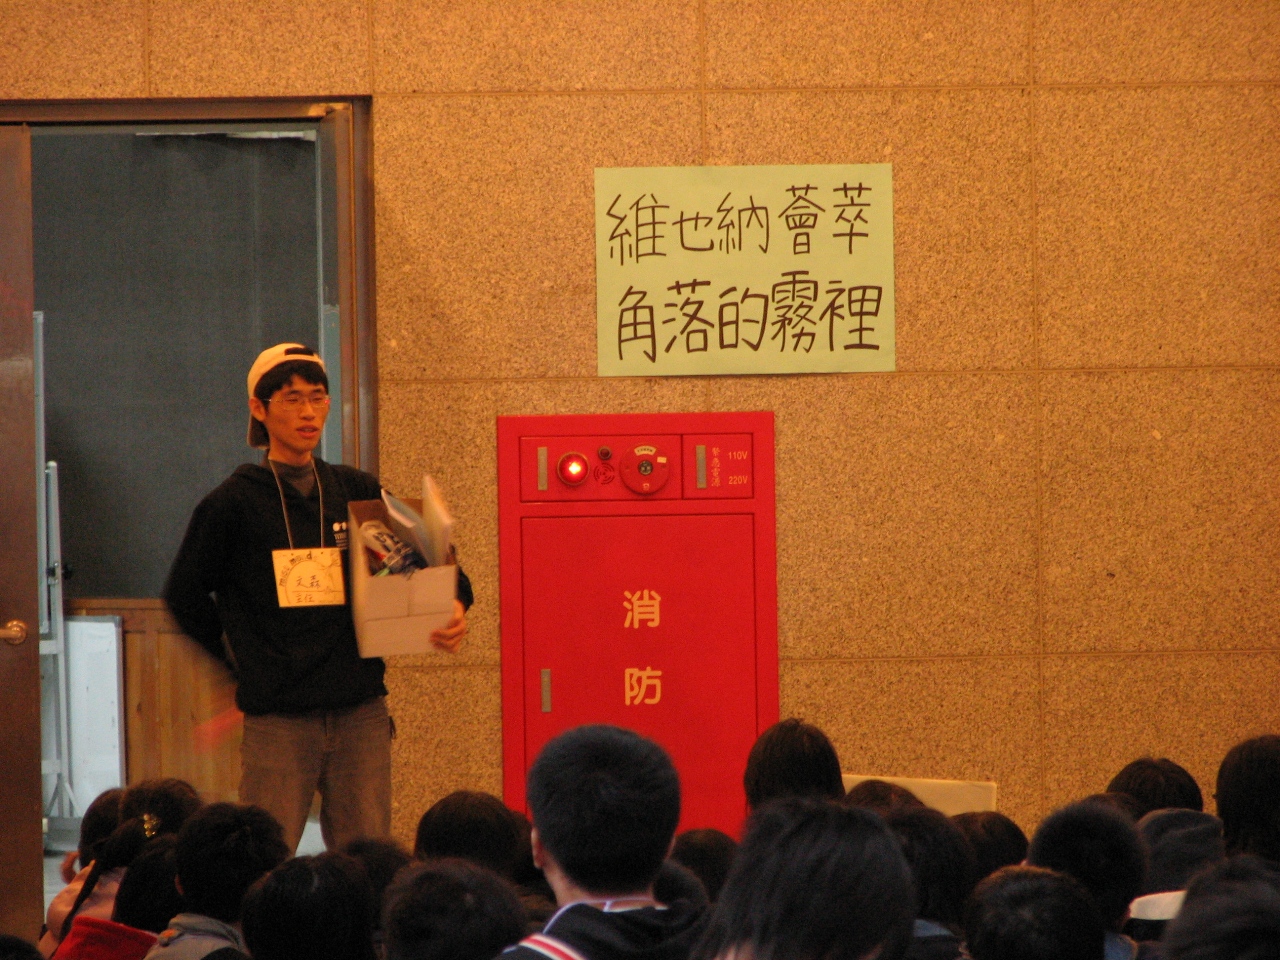 維也納薈萃
角落的霧裡
緊急電源
110V
220V
消
防
文森
主任